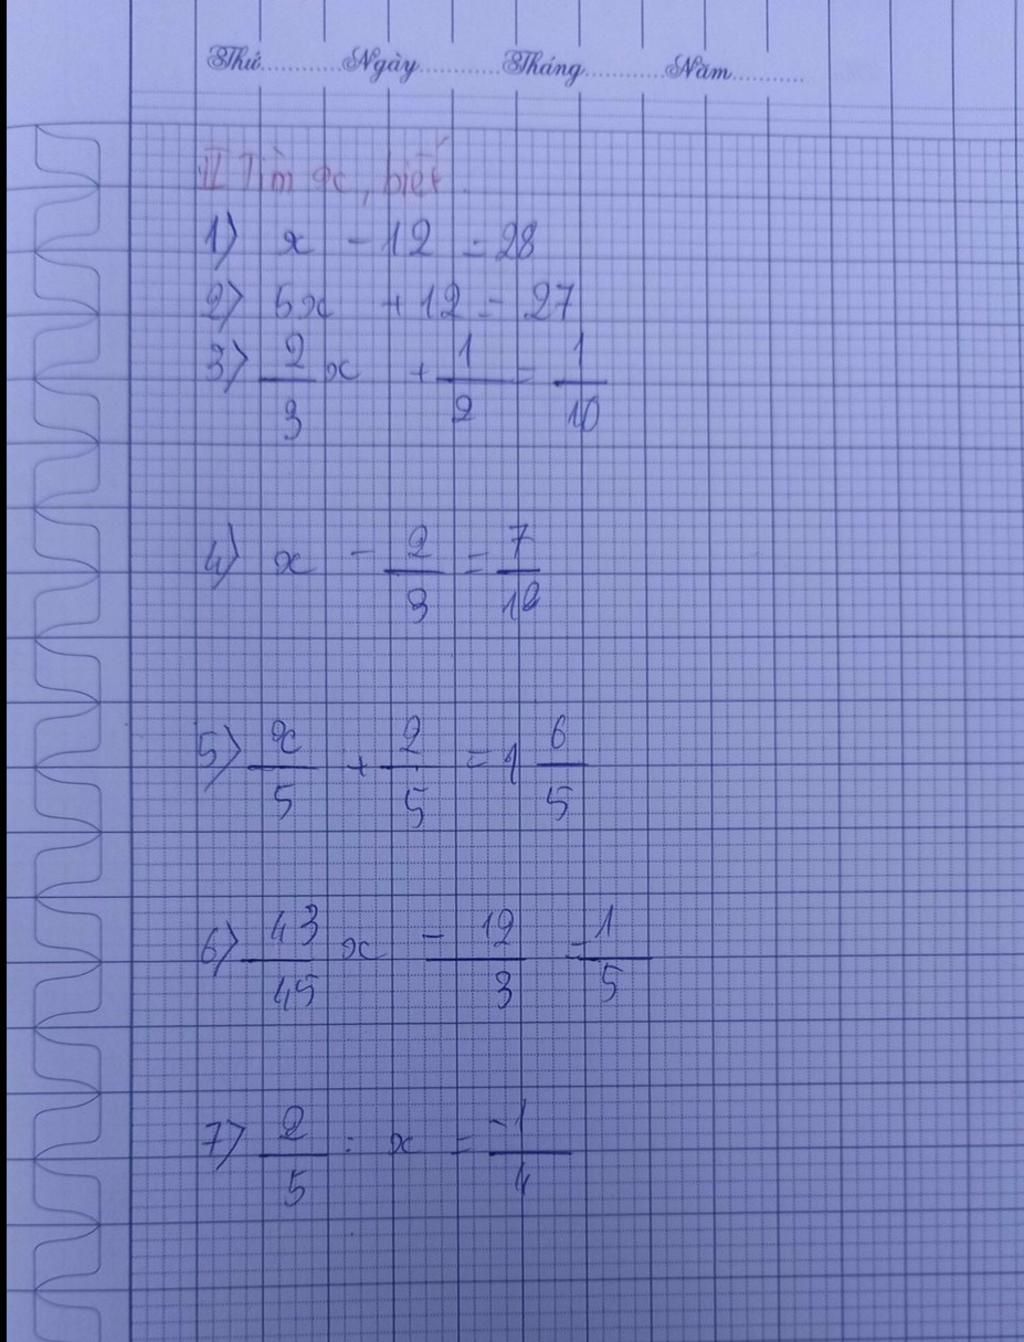 Thứ............Ngày............Tháng............Năm............
II Tìm x, biết.
1) x - 12 = 28
2) 5x + 12 = 27
3) 2/3 x + 1/2 = 1/10
4) x - 2/3 = 7/12
5) x/5 + 2/5 = 1 6/5
6) 43/45 x - 12/3 = 1/5
7) 2/5 : x = -1/4